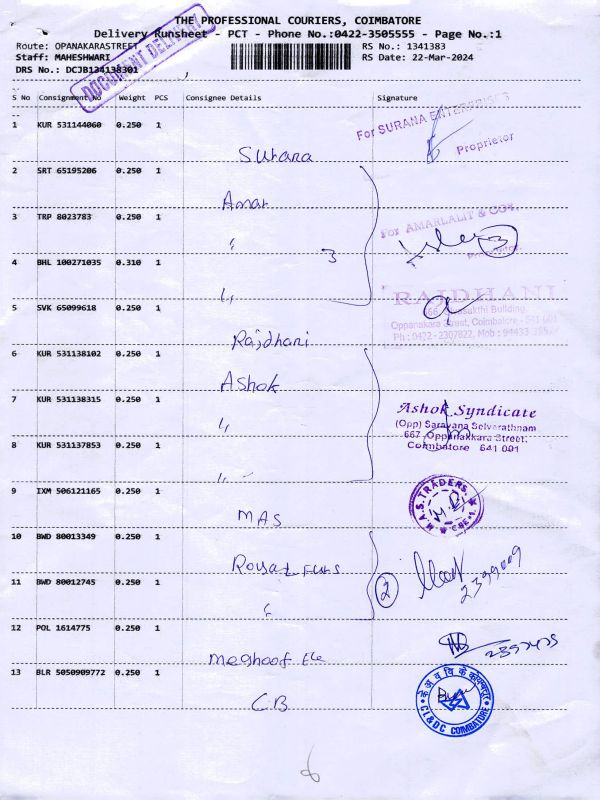 THE PROFESSIONAL COURIERS, COIMBATORE
Delivery Runsheet - PCT - Phone No.:0422-3505555 - Page No.:1
Route: OPANAKARASTREET
RS No.: 1341383
Staff: MAHESHWARI
RS Date: 22-Mar-2024
DRS No.: DCJB134138301
DOCUMENT DELIVERY
S No Consignment No Weight PCS Consignee Details Signature
1 KUR 531144060 0.250 1
For SURANA ENTERPRISES
Proprietor
Surana
2 SRT 65195206 0.250 1
Amar
3 TRP 8023783 0.250 1
For AMARLALIT & COY.
3
3
4 BHL 100271035 0.310 1
RAJDHANI
Oppanakara Street, Coimbatore - 641 001
Ph : 0422 - 2307822, Mob : 94433
5 SVK 65099618 0.250 1
Rajdhani
6 KUR 531138102 0.250 1
Ashok
7 KUR 531138315 0.250 1
Ashok Syndicate
(Opp) Saravana Selvarathnam
667, Oppanakkara Street,
Coimbatore 641 001
8 KUR 531137853 0.250 1
9 IXM 506121165 0.250 1
M.A.S. TRADERS
CBE-1
MAS
10 BWD 80013349 0.250 1
2399009
11 BWD 80012745 0.250 1
2
12 POL 1614775 0.250 1
13 BLR 5050909772 0.250 1
CI&DC COIMBATORE
C.B